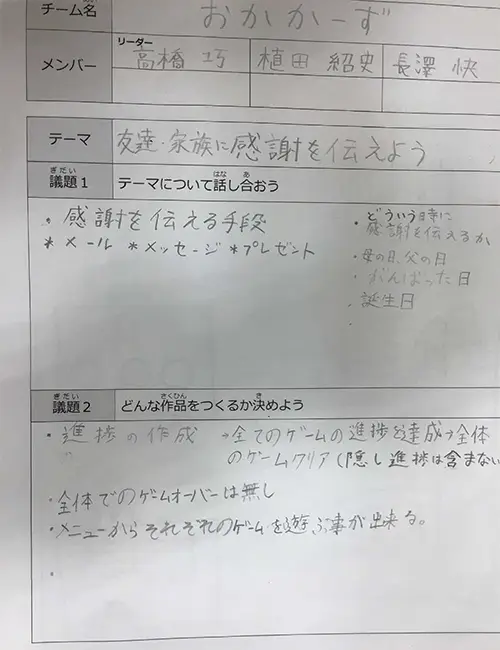 チーム名 おかかーず
リーダー
メンバー 高橋 巧 植田 紹史 長澤 快
テーマ 友達・家族に感謝を伝えよう
ぎだい はな あ
議題1 テーマについて話し合おう
・感謝を伝える手段
*メール *メッセージ *プレゼント
・どういう時に
感謝を伝えるか
・母の日、父の日
・がんばった日
・誕生日
ぎだい さくひん き
議題2 どんな作品をつくるか決めよう
・進捗の作成 →全てのゲームの進捗を達成→全体
のゲームクリア(隠し進捗は含まない
・全体でのゲームオーバーは無し
・メニューからそれぞれのゲームを遊ぶ事が出来る。